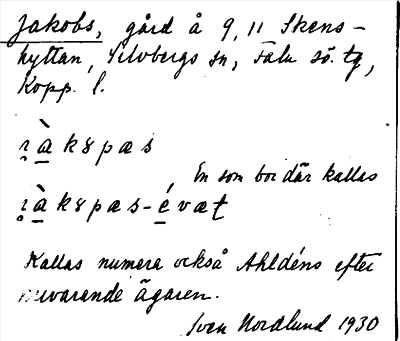 Jakobs, gård å 9, 11 Skens-
hyttan, Silvbergs sn, Falu sö. tg,
Kopp. l.
En som bor där kallas
Kallas numera också Ahldéns efter
nuvarande ägaren.
Sven Nordlund 1930